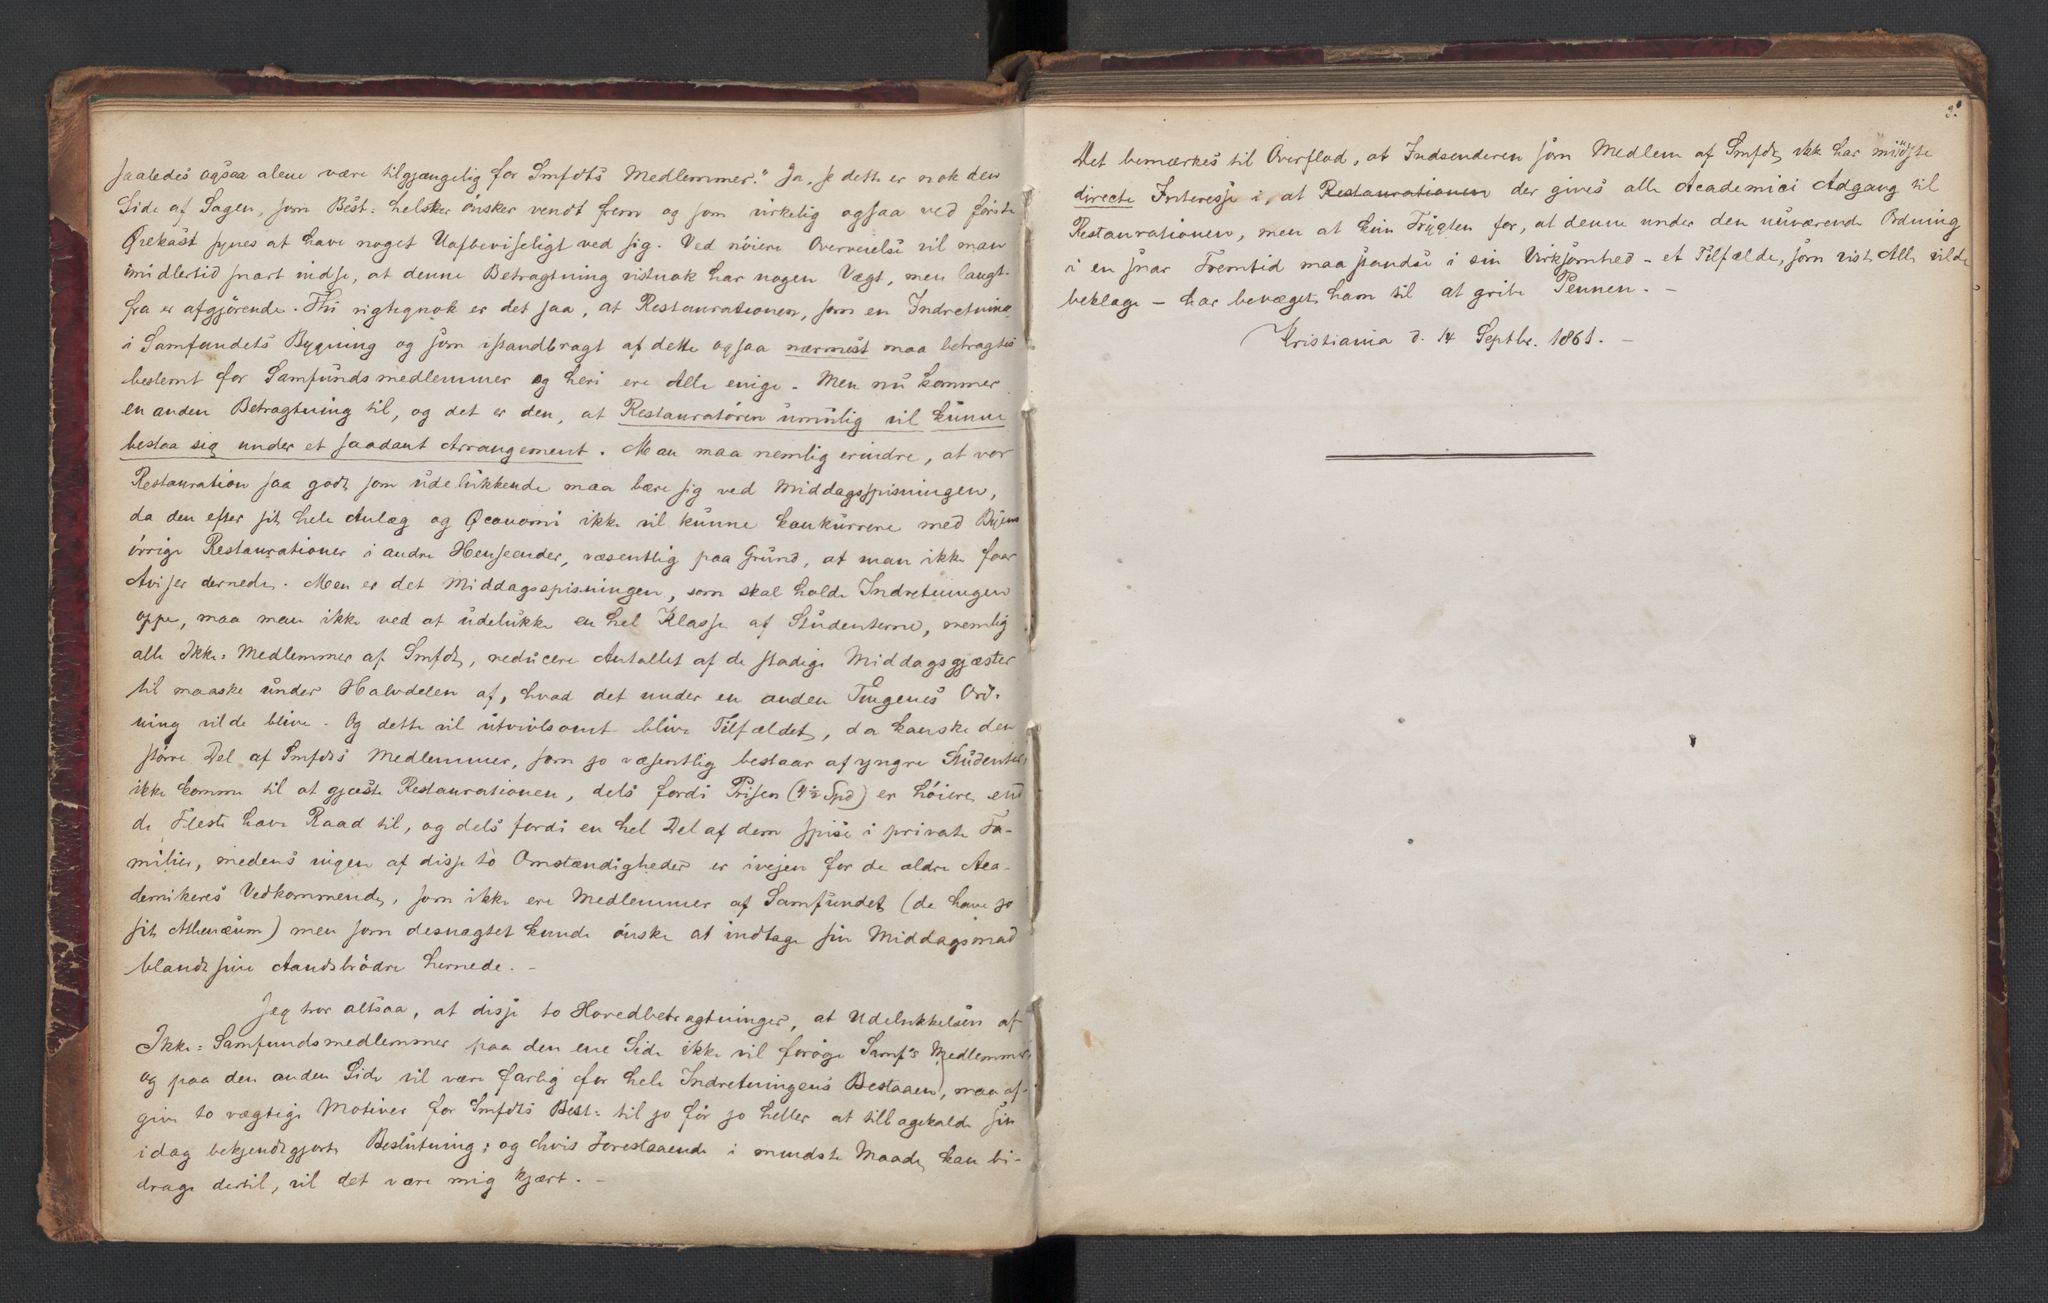 saaledes ogsaa alene være tilgjængelig for Smfdts Medlemmer." Ja, se dette er nok den
Side af Sagen, som Best: helsker önsker vendt frem og som virkelig ogsaa ved förste
Öiekast synes at have noget Uafbeviseligt ved sig. Ved nöiere Overveielse vil man
imidlertid snart indse, at denne Betragtning vistnok har nogen Vægt, men langt-
fra er afgjörende. Thi rigtignok er det saa, at Restaurationen, som en Indretning
i Samfundets Bygning og som istandbragt af dette ogsaa nærmest maa betragtes
bestemt for Samfundsmedlemmer og heri ere Alle enige. Men nu kommer
en anden Betragtning til, og det er den, at Restauratören umulig vil kunne
bestaa sig under et saadant Arrangement. Man maa nemlig erindre, at vor
Restauration saa godt som udelukkende maa bære sig ved Middagsspisningen,
da den efter sit hele Anlæg og Oeconomi ikke vil kunne konkurrere med Byens
övrige Restaurationer i andre Henseender, væsentlig paa Grund, at man ikke faar
Aviser dernede. Men er det Middagsspisningen, som skal holde Indretningen
oppe, maa man ikke ved at udelukke en hel Klasse af Studenterne, nemlig
alle Ikke-Medlemmer af Smfdt, reducere Antallet af de stadige Middagsgjæster
til maaske under Halvdelen af, hvad det under en anden Tingenes Ord-
ning vilde blive. Og dette vil utvivlsomt blive Tilfældet, da kanske den
större Del af Smfdts Medlemmer, som jo væsentlig bestaar af yngre Studenter,
ikke komme til at gjæste Restaurationen, dels fordi Prisen (4½ Spd) er höiere, end
de Fleste have Raad til, og dels fordi en hel Del af dem spise i private Fa-
milier, medens ingen af disse to Omstændigheder er ivejen for de ældre Aca-
demikeres Vedkommende, som ikke ere Medlemmer af Samfundet (de have jo
sit Athenæum) men som desuagtet kunde önske at indtage sin Middagsmad
blandt sine Aandsbrödre hernede. –
Jeg tror altsaa, at disse to Hovedbetragtninger, at Udelukkelsen af
Ikke-Samfundsmedlemmer paa den ene Side ikke vil foröge Smf's Medlemmer
og paa den anden Side vil være farlig for hele Indretningens Bestaaen, maa af-
give to vægtige Motiver for Smfdts Best: til jo för jo heller at tilbagekalde sin
idag bekjendtgjorte Beslutning; og hvis Forestaaende i mindste Maade kan bi-
drage dertil, vil det være mig kjært. –
3.
Det bemærkes til Overflod, at Indsenderen som Medlem af Smfdt ikke har mindste
directe Interesse i, at Restaurationen der gives alle Academici Adgang til
Restaurationen, men at kun Frygten for, at denne under den nuværende Ordning
i en snar Fremtid maa standse i sin Virksomhed – et Tilfælde, som vist Alle vilde
beklage – har bevæget ham til at gribe Pennen. –
Kristiania d. 14 Septbr. 1861. –